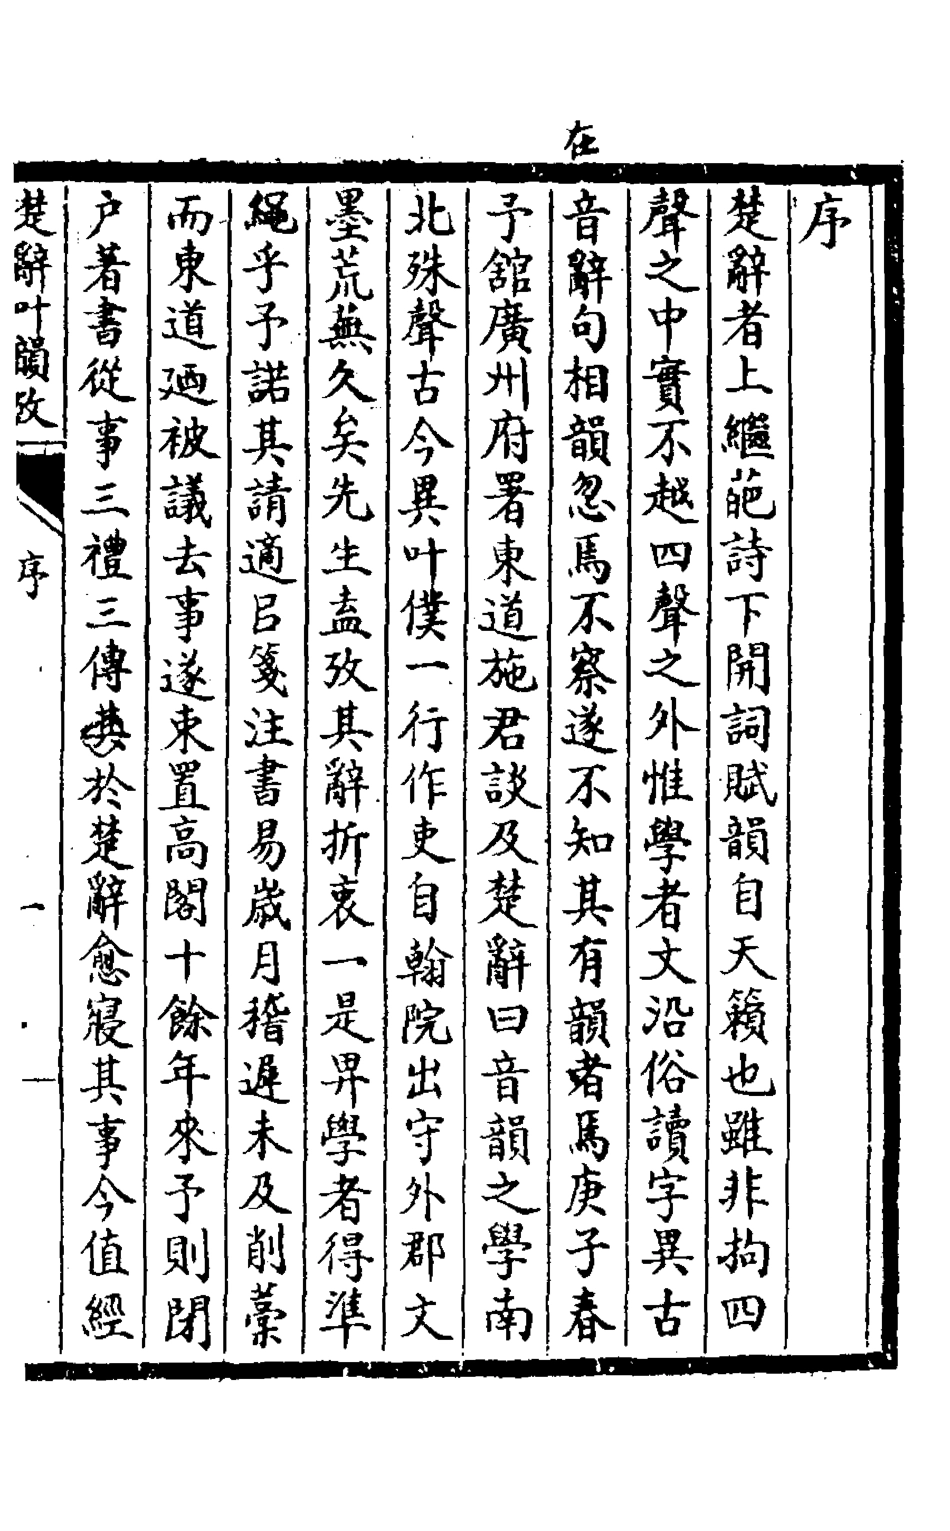 在
序
楚辭者上繼葩詩下開詞賦韻自天籟也雖非拘四
聲之中實不越四聲之外惟學者文沿俗讀字異古
音辭句相韻忽焉不察遂不知其有韻者焉庚子春
予舘廣州府署東道施君談及楚辭曰音韻之學南
北殊聲古今異叶僕一行作吏自翰院出守外郡文
墨荒蕪久矣先生盍攷其辭折衷一是畀學者得準
繩乎予諾其請適㠯箋注書易歲月稽遲未及削藁
而東道廼被議去事遂束置高閣十餘年來予則閉
户著書從事三禮三傳其於楚辭愈寢其事今值經
楚辭叶韻攷
序
一